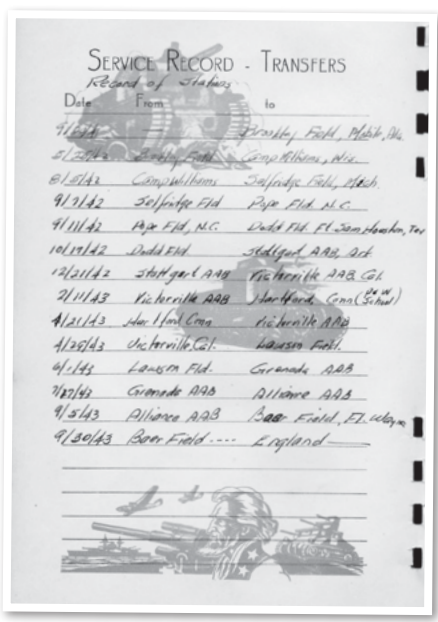 SERVICE RECORD - TRANSFERS
Record of Stations
Date From to
Brookley Field, Mobile, Ala.
Camp Williams, Wis.
Camp Williams Selfridge Field, Mich.
9/7/42 Selfridge Fld Pope Fld. N.C.
9/11/42 Pope Fld, N.C. Dodd Fld. Ft Sam Houston, Tex
10/19/42 Dodd Fld. Stuttgart AAB, Ark
12/21/42 Stuttgart AAB Victorville AAB Cal.
2/11/43 Victorville AAB Hartford, Conn (P&W School)
4/21/43 Hartford Conn Victorville AAB
4/29/43 Victorville, Cal. Lawson Field.
6/1/43 Lawson Fld. Grenada AAB
7/27/43 Grenada AAB Alliance AAB
9/5/43 Alliance AAB Baer Field, Ft. Wayne
9/30/43 Baer Field ---- England